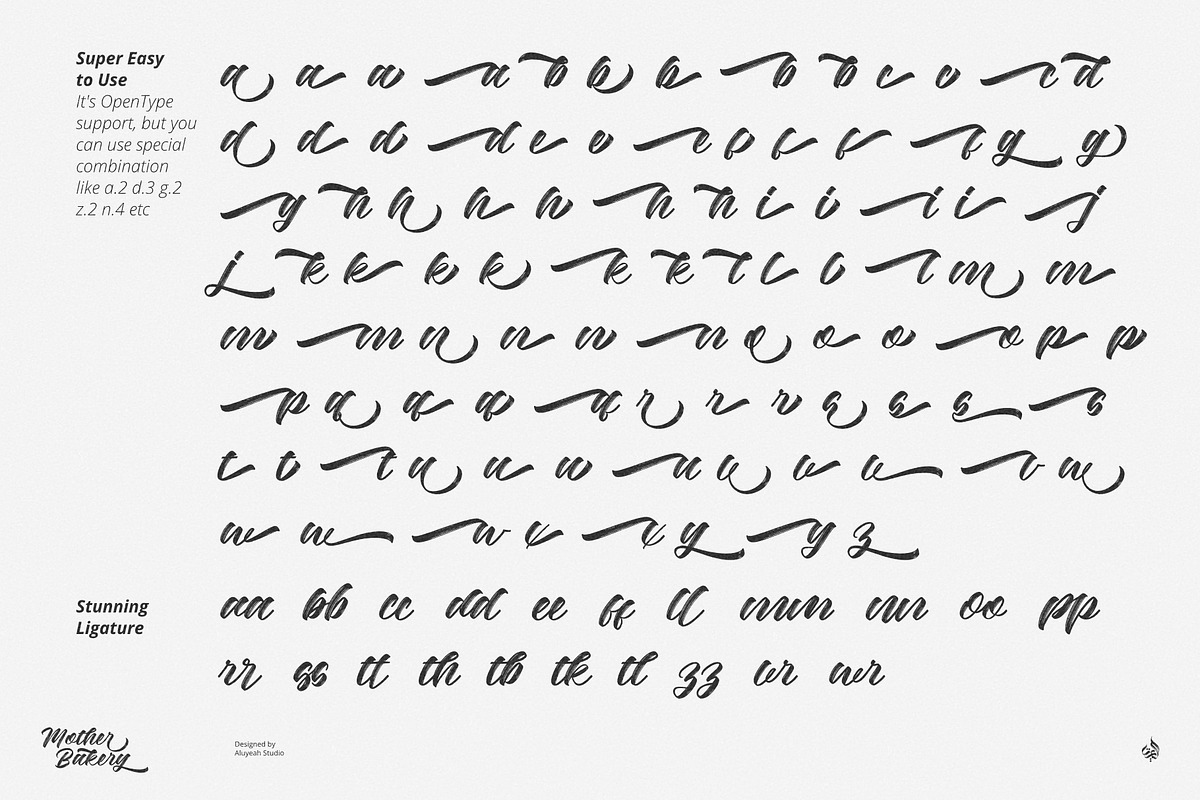 Super Easy
to Use
It's OpenType
support, but you
can use special
combination
like a.2 d.3 g.2
z.2 n.4 etc
a a a a b b b b b c c c d
d d d d e e e f f f f g g
g h h h h h h i i i i j
j k k k k k k l l l l m m
m m n n n n o o o o p p
p q q q q r r r s s s s
t t t u u u u v v v v w
w w w x x y y z
Stunning
Ligature
aa bb cc dd ee ff ll mm nn oo pp
rr ss tt th tb tk tl zz vr wr
Mother
Bakery
Designed by
Aluyeah Studio